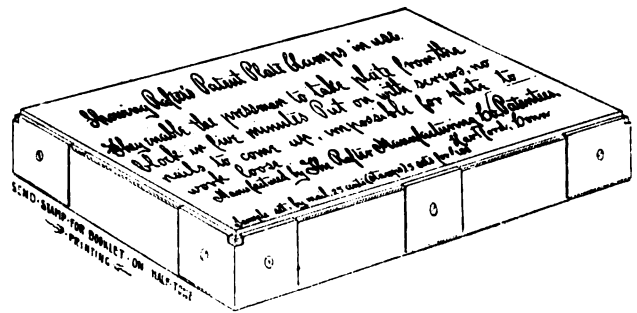 Showing Rafter's Patent Plate Clamps in use.
They enable the pressman to take plate from the
block in five minutes Put on with screws, no
nails to come up, impossible for plate to
work loose
Manufactured by The Rafter Manufacturing Co. Patentees.
Hartford, Conn
Sample set by mail 25 cents (stamps) 5 sets for
SEND · STAMP · FOR BOOKLET · ON HALF-TONE
PRINTING